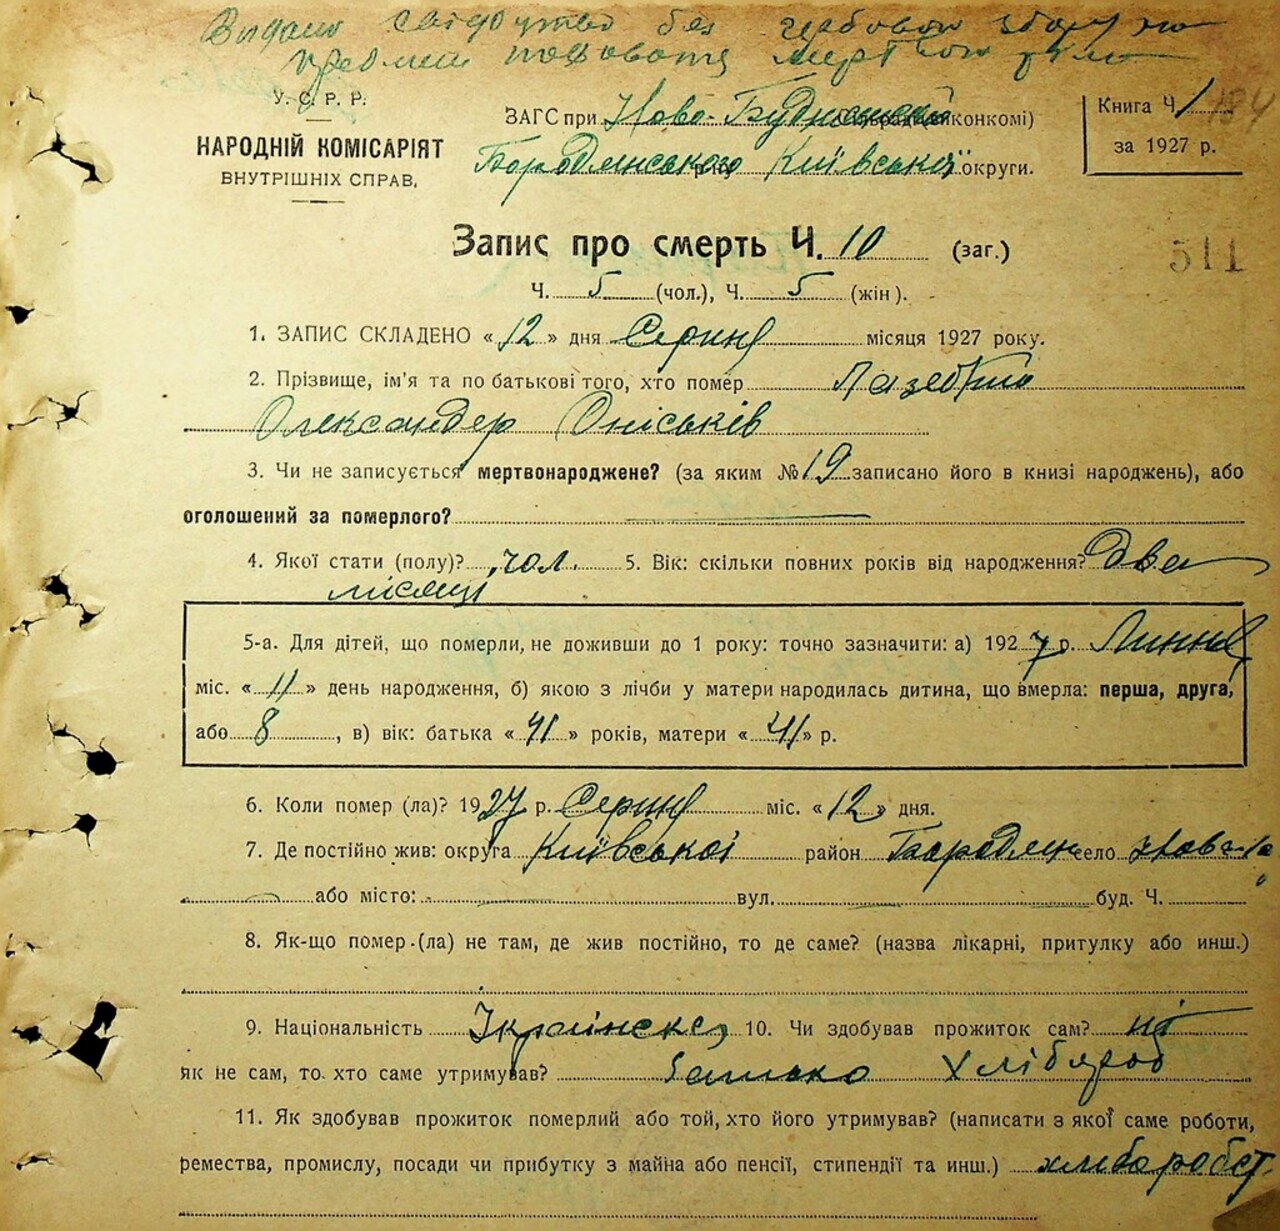 Видано свідоцтво без гербового збору на
предмет поховати мертвого тіла
У. С. Р. Р.
НАРОДНІЙ КОМІСАРІЯТ
ВНУТРІШНІХ СПРАВ.
ЗАГС при Ново-Буднянській конкомі)
Бородянського Київської округи.
Книга Ч. 1
за 1927 р.
511
Запис про смерть Ч. 10 (заг.)
Ч. 5 (чол.), Ч. 5 (жін).
1. ЗАПИС СКЛАДЕНО «12» дня Серпня місяця 1927 року.
2. Прізвище, ім'я та по батькові того, хто помер
Олександер Оніськів
3. Чи не записується мертвонароджене? (за яким № 19 записано його в книзі народжень), або
оголошений за померлого?
4. Якої стати (полу)? чол. 5. Вік: скільки повних років від народження? Два
місяці
5-а. Для дітей, що померли, не доживши до 1 року: точно зазначити: а) 1927 р. Липня
міс. «11» день народження, б) якою з лічби у матери народилась дитина, що вмерла: перша, друга,
або 8, в) вік: батька «41» років, матери «41» р.
6. Коли помер (ла)? 1927 р. Серпня міс. «12» дня.
7. Де постійно жив: округа Київської район Бородян село Нова
або місто: вул. буд. Ч.
8. Як-що помер (ла) не там, де жив постійно, то де саме? (назва лікарні, притулку або инш.)
9. Національність 10. Чи здобував прожиток сам? ні
як не сам, то хто саме утримував? батько Хлібороб
11. Як здобував прожиток померлий або той, хто його утримував? (написати з якої саме роботи,
ремества, промислу, посади чи прибутку з майна або пенсії, стипендії та инш.) хліборобст.